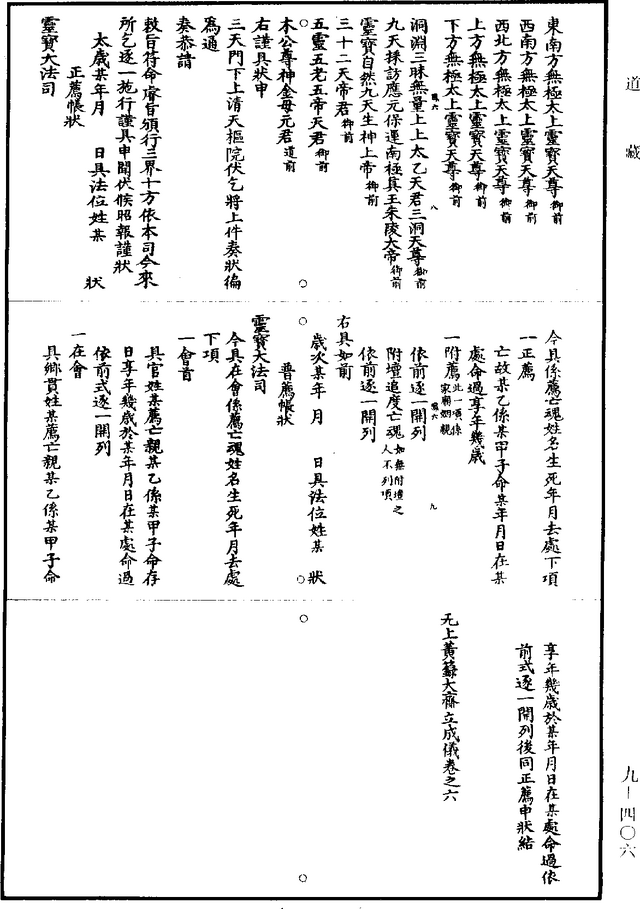 道藏
東南方無極太上靈寶天尊御前
西南方無極太上靈寶天尊御前
西北方無極太上靈寶天尊御前
上方無極太上靈寶天尊御前
下方無極太上靈寶天尊御前
八
洞淵三昧無量上上太乙天君三洞天尊御前
九天採訪應元保運南極真王朱陵大帝御前
靈寶自然九天生神上帝御前
三十二天帝君御前
五靈五老五帝天君御前
木公尊神金母元君道前
右謹具狀申
三天門下上清天樞院伏乞將上件奏狀徧
為通
奏恭請
敕旨符命疏旨頒行三界十方依本司今來
所乞逐一施行謹具申聞伏候昭報謹狀
太歲某年月 日具法位姓某 狀
正薦帳狀
靈寶大法司
今具係薦亡魂姓名生死年月去處下項
一正薦
亡故某乙係某甲子命某年月日在某
處命過享年幾歲
一附薦此一項係家廟姻親
九
依前逐一開列
附壇追度亡魂如無附壇之人不列項
依前逐一開列
右具如前
歲次某年 月 日具法位姓某 狀
普薦帳狀
靈寶大法司
今具在會係薦亡魂姓名生死年月去處
下項
一會首
具官姓某薦亡親某乙係某甲子命存
日享年幾歲於某年月日在某處命過
依前式逐一開列
一在會
具鄉貫姓某薦亡親某乙係某甲子命
享年幾歲於某年月日在某處命過依
前式逐一開列後同正薦申狀結
无上黃籙大齋立成儀卷之六
九—四〇六